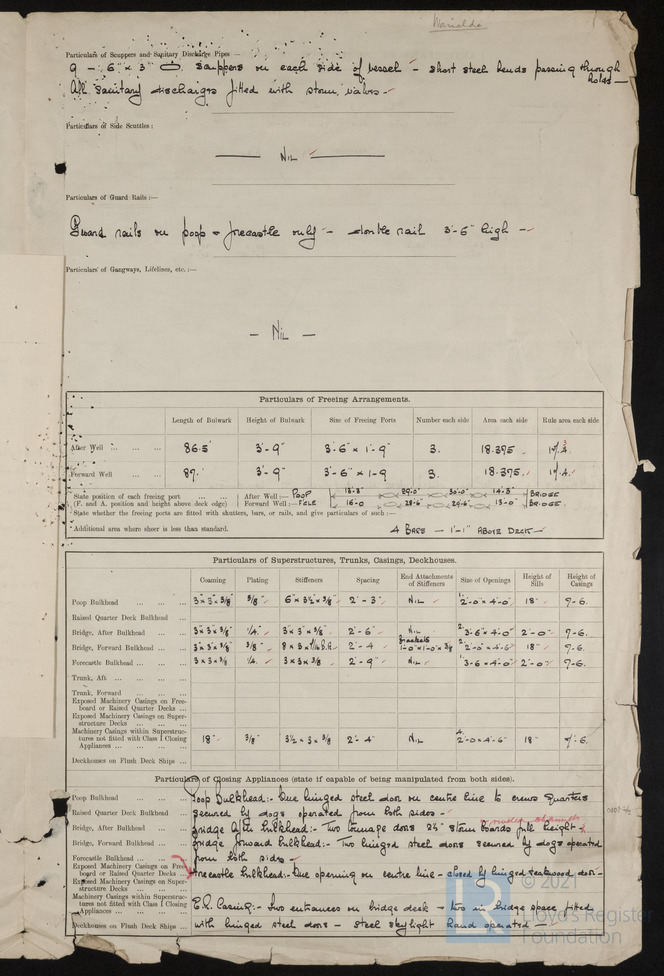 Particulars of Scuppers and Sanitary Discharge Pipes —
9 - 6" x 3" scuppers on each side of vessel - short steel bends passing through
holds —
All sanitary discharges fitted with storm valves -
Particulars of Side Scuttles :
— NIL —
Particulars of Guard Rails :—
Guard rails on poop & forecastle only - double rail 3'-6" high -
Particulars of Gangways, Lifelines, etc. :—
— NIL —
Particulars of Freeing Arrangements.
Length of Bulwark Height of Bulwark Size of Freeing Ports Number each side Area each side Rule area each side
After Well ... ... ... 86.5' 3'-9" 3'-6" x 1'-9" 3. 18.375
Forward Well ... ... ... 87.' 3'-9" 3'-6" x 1'-9 3. 18.375
State position of each freeing port ... ... After Well :— POOP 29.0' 30'-0" 14'-3" BRIDGE
(F. and A. position and height above deck edge) Forward Well :— F'CLE 16-0 28'-6" 29'-6" 13'-0" BRIDGE
State whether the freeing ports are fitted with shutters, bars, or rails, and give particulars of such :—
Additional area where sheer is less than standard. 4 BARS — 1'-1" ABOVE DECK —
Particulars of Superstructures, Trunks, Casings, Deckhouses.
Coaming Plating Stiffeners Spacing End Attachments of Stiffeners Size of Openings Height of Sills Height of Casings
Poop Bulkhead ... ... ... 3"x3"x3/8" 3/8" 6"x3½"x3/8" 2'-3" NIL 2'-0"x4'-0" 18" 7-6.
Raised Quarter Deck Bulkhead ...
Bridge, After Bulkhead ... ... 3"x3"x3/8 1/4" 3"x3"x3/8" 2'-6" NIL 3'-6"x4'-0" 2'-0" 7-6.
Bridge, Forward Bulkhead ... ... 3"x3"x3/8" 3/8" 2'-4 Brackets 1'-0"x1'-0"x3/8 2'-0"x4'-6" 18" 7-6.
Forecastle Bulkhead ... ... ... 3x3x3/8 1/4. 3x3x3/8 2'-9" NIL 3-6x4-0" 2'-0" 7-6.
Trunk, Aft ... ... ... ...
Trunk, Forward ... ... ...
Exposed Machinery Casings on Free-
board or Raised Quarter Decks ...
Exposed Machinery Casings on Super-
structure Decks ... ... ...
Machinery Casings within Superstruc-
tures not fitted with Class I Closing
Appliances ... ... ... ... 18" 3/8" 3½x3x3/8 2'-4" NIL 2'-0x4'-6" 18"
Deckhouses on Flush Deck Ships ...
Particulars of Closing Appliances (state if capable of being manipulated from both sides).
Poop Bulkhead ... ... ... Poop Bulkhead:- One hinged steel door on centre line to crews quarters
Raised Quarter Deck Bulkhead ... secured by dogs operated from both sides -
Bridge, After Bulkhead ... ... Bridge After bulkhead:- Two tonnage doors 2½" storm boards full height
Bridge, Forward Bulkhead ... ... Bridge forward bulkhead:- Two hinged steel doors secured by dogs operated
Forecastle Bulkhead ... ... ... from both sides —
Exposed Machinery Casings on Free-
board or Raised Quarter Decks ... Forecastle bulkhead:- One opening on centre line - closed by hinged teakwood door -
Exposed Machinery Casings on Super-
structure Decks ... ... ...
Machinery Casings within Superstruc-
tures not fitted with Class I Closing
Appliances ... ... ... ... E.R. Casing:- two entrances on bridge deck - two in bridge space fitted
Deckhouses on Flush Deck Ships ... with hinged steel doors - steel skylight hand operated —
LR
© 2021
Lloyd's Register
Foundation